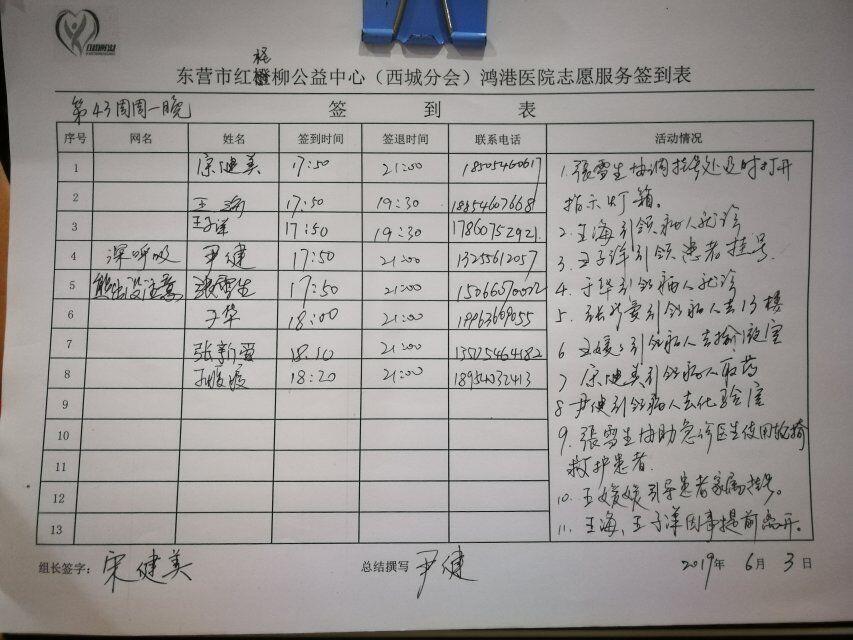 柽
东营市红柳公益中心（西城分会）鸿港医院志愿服务签到表
第43周周一晚 签 到 表
序号 网名 姓名 签到时间 签退时间 联系电话 活动情况
1 宋健美 17:50 21:00 18505460617
2 王海 17:50 19:30 18854607668
3 王子洋 17:50 19:30 17860752921
4 深呼吸 尹健 17:50 21:00 13255612057
5 熊出没注意 張雪生 17:50 21:00
6 于华 18:00 21:00
7 张新爱 18:10 21:00
8 18:20 21:00 18954032413
9
10
11
12
13
1.張雪生协调挂号处及时打开
指示灯箱。
2.王海引领病人就诊
3.王子洋引领患者挂号.
4.于华引领病人就诊
5.张新爱引领病人去13楼
6 王媛媛引领病人去输液室
7 宋健美引领病人取药
8 尹健引领病人去化验室
9.張雪生协助急诊医生使用轮椅
救护患者.
10.王媛媛引导患者家属挂号。
11.王海、王子洋因事提前离开。
组长签字：宋健美 总结撰写 尹健 2019年 6月 3日